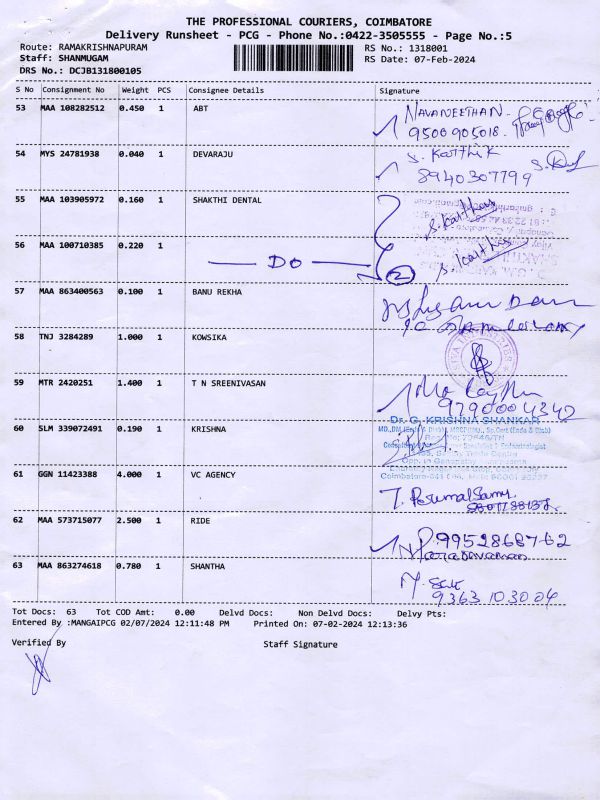 THE PROFESSIONAL COURIERS, COIMBATORE
Delivery Runsheet - PCG - Phone No.:0422-3505555 - Page No.:5
Route: RAMAKRISHNAPURAM RS No.: 1318001
Staff: SHANMUGAM RS Date: 07-Feb-2024
DRS No.: DCJB131800105
S No Consignment No Weight PCS Consignee Details Signature
53 MAA 108282512 0.450 1 ABT NAVANEETHAN
9500905018
54 MYS 24781938 0.040 1 DEVARAJU S. Karthik
8940307799
55 MAA 103905972 0.160 1 SHAKTHI DENTAL S. Karthik
56 MAA 100710385 0.220 1 — DO — 2 S. Karthik
57 MAA 863400563 0.100 1 BANU REKHA
58 TNJ 3284289 1.000 1 KOWSIKA
59 MTR 2420251 1.400 1 T N SREENIVASAN
9790004340
60 SLM 339072491 0.190 1 KRISHNA Dr. G. KRISHNA SHANKAR
61 GGN 11423388 4.000 1 VC AGENCY T. PerumalSamy
62 MAA 573715077 2.500 1 RIDE 9952868762
63 MAA 863274618 0.780 1 SHANTHA
9363103004
Tot Docs: 63 Tot COD Amt: 0.00 Delvd Docs: Non Delvd Docs: Delvy Pts:
Entered By :MANGAIPCG 02/07/2024 12:11:48 PM Printed On: 07-02-2024 12:13:36
Verified By Staff Signature